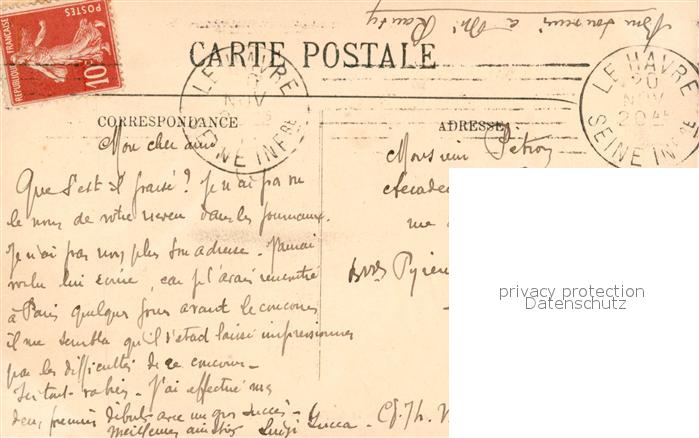 Mon souvenir à Mr Rauty
CARTE POSTALE
POSTES
REPUBLIQUE FRANÇAISE
10c
LE HAVRE
NOV
SEINE INFRE
LE HAVRE
20
NOV
20
SEINE INFRE
CORRESPONDANCE
ADRESSE
Mon cher ami
Que s'est il passé ? Je n'ai pas vu
le nom de votre neveu dans les journaux.
Je n'ai pas non plus son adresse. J'aurai
voulu lui écrire, car je l'avais rencontré
à Paris quelques jours avant le concours
il me sembla qu'il s'était laissé impressionner
par les difficultés de ce concours -
J'ai effectué mes
deux premiers débuts avec un gros succès -
Meilleures amitiés Luigi
Monsieur Pétron
rue
Bses Pyrén
privacy protection
Datenschutz